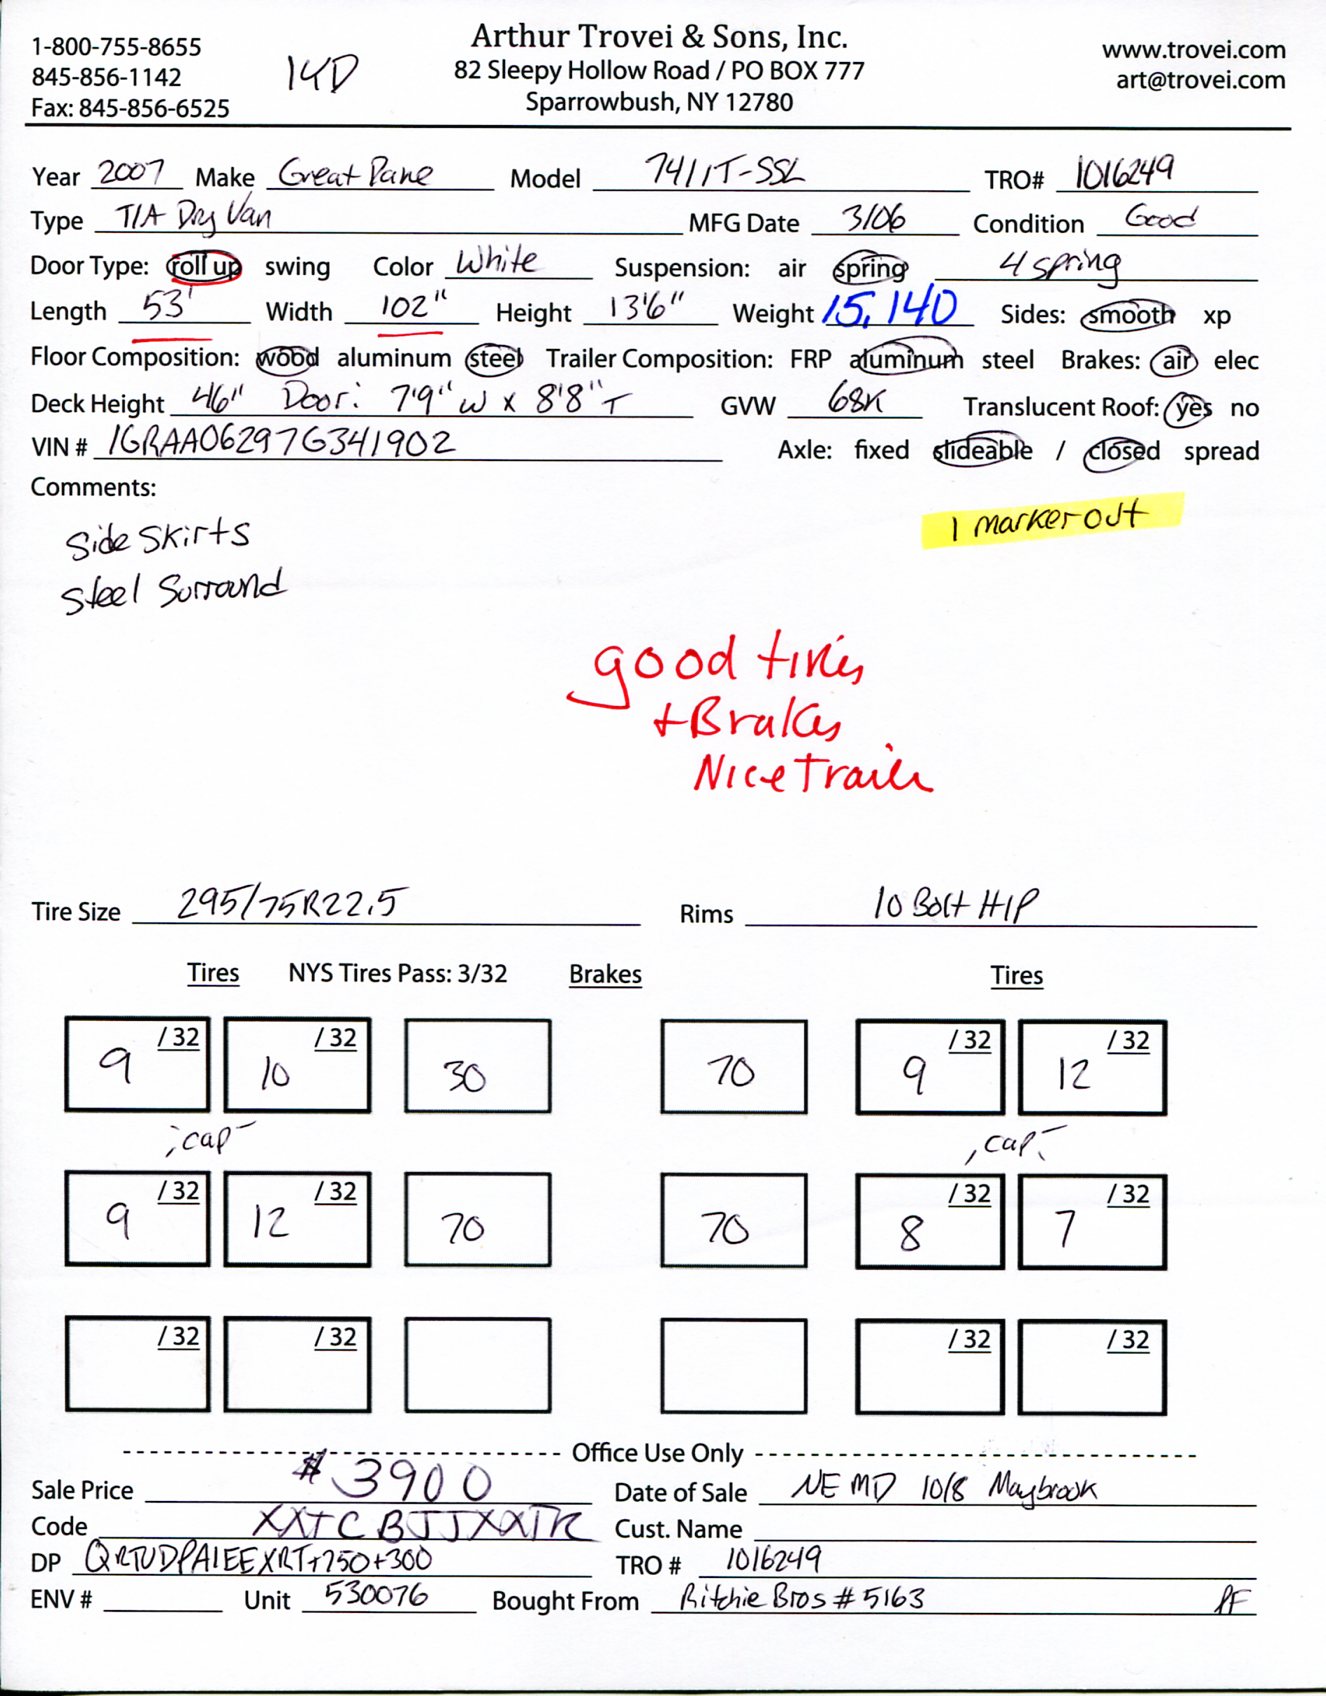 1-800-755-8655
845-856-1142
Fax: 845-856-6525
14D
Arthur Trovei & Sons, Inc.
82 Sleepy Hollow Road / PO BOX 777
Sparrowbush, NY 12780
www.trovei.com
art@trovei.com
Year 2007 Make Great Dane Model 7411T-SSL TRO# 1016249
Type T/A Dry Van MFG Date 3/06 Condition Good
Door Type: roll up swing Color White Suspension: air spring 4 spring
Length 53' Width 102" Height 13'6" Weight 15,140 Sides: smooth xp
Floor Composition: wood aluminum steel Trailer Composition: FRP aluminum steel Brakes: air elec
Deck Height 46" Door: 7'9" W x 8'8" T GVW 68K Translucent Roof: yes no
VIN # 1GRAA06297G341902 Axle: fixed slideable / closed spread
Comments:
1 marker out
Side Skirts
Steel Surround
good tires
+ Brakes
Nice Trailer
Tire Size 295/75R22.5 Rims 10 Bolt H/P
Tires NYS Tires Pass: 3/32 Brakes Tires
9 /32 10 /32 30 70 9 /32 12 /32
cap cap
9 /32 12 /32 70 70 8 /32 7 /32
/32 /32 /32 /32
Office Use Only
Sale Price # 3900 Date of Sale NE MD 10/8 Maybrook
Code XXTCBJJXXTR Cust. Name
DP QRTUDPAIEEXRT+750+300 TRO # 1016249
ENV # Unit 530076 Bought From Ritchie Bros # 5163 PF